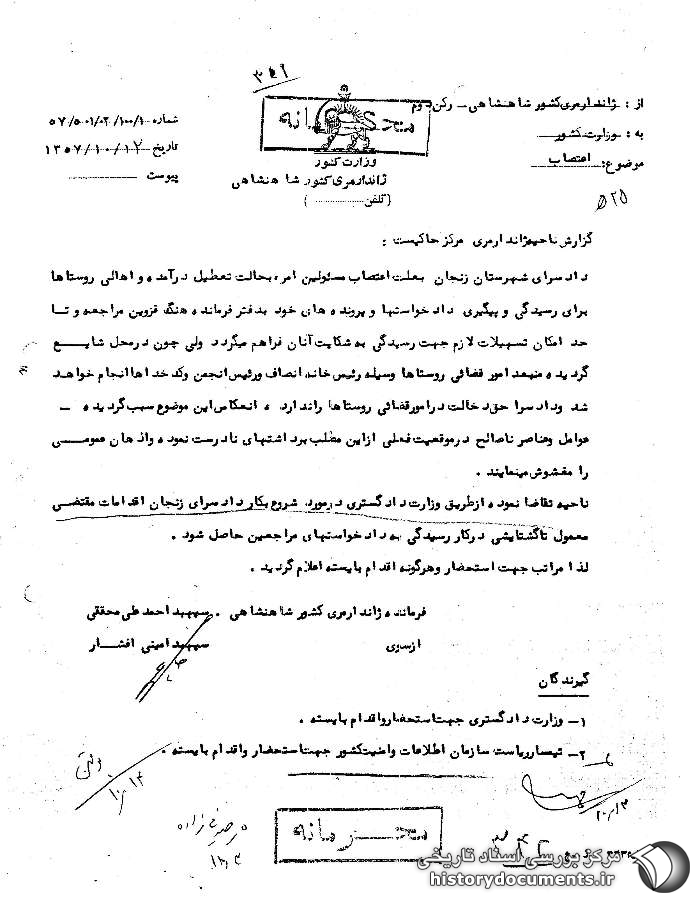 از : ژاندارمری کشور شاهنشاهی - رکن دوم
به : وزارت کشور
موضوع : اعتصاب
۵۲۵
محرمانه
وزارت کشور
ژاندارمری کشور شاهنشاهی
(تلفن)
شماره ۵۷/۵۰۱/۰۲/۱۰۰/۱
تاریخ ۱۳۵۷/۱۰/۱۲
پیوست
گزارش ناحیه ژاندارمری مرکز حاکیست :
دادسرای شهرستان زنجان بعلت اعتصاب مسئولین امر ، بحالت تعطیل درآمده و اهالی روستاها
برای رسیدگی و پیگیری دادخواستها و پرونده های خود بدفتر فرمانده هنگ قزوین مراجعه و تا
حد امکان تسهیلات لازم جهت رسیدگی به شکایت آنان فراهم میگردد ولی چون در محل شایع
گردیده منبعد امور قضائی روستاها وسیله رئیس خانه انصاف و رئیس انجمن و کدخداها انجام خواهد
شد و دادسرا حق دخالت در امور قضائی روستاها را ندارد . انعکاس این موضوع سبب گردیده -
عوامل و عناصر ناصالح در موقعیت فعلی از این مطلب برداشتهای نادرست نموده و اذهان عمومی
را مغشوش مینمایند .
ناحیه تقاضا نموده از طریق وزارت دادگستری در مورد شروع بکار دادسرای زنجان اقدامات مقتضی
معمول تا گشایشی در کار رسیدگی به دادخواستهای مراجعین حاصل شود .
لذا مراتب جهت استحضار و هرگونه اقدام بایسته اعلام گردید .
فرمانده ژاندارمری کشور شاهنشاهی . سپهبد احمد علی محققی
از سوی سپهبد امینی افشار
گیرندگان
۱- وزارت دادگستری جهت استحضار و اقدام بایسته .
۲- تیمسار ریاست سازمان اطلاعات و امنیت کشور جهت استحضار و اقدام بایسته .
۱۰/۱۳
محرمانه
مرکز بررسی اسناد تاریخی
historydocuments.ir